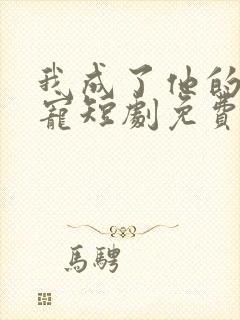 我成了他的
寵短劇免費
馬騁